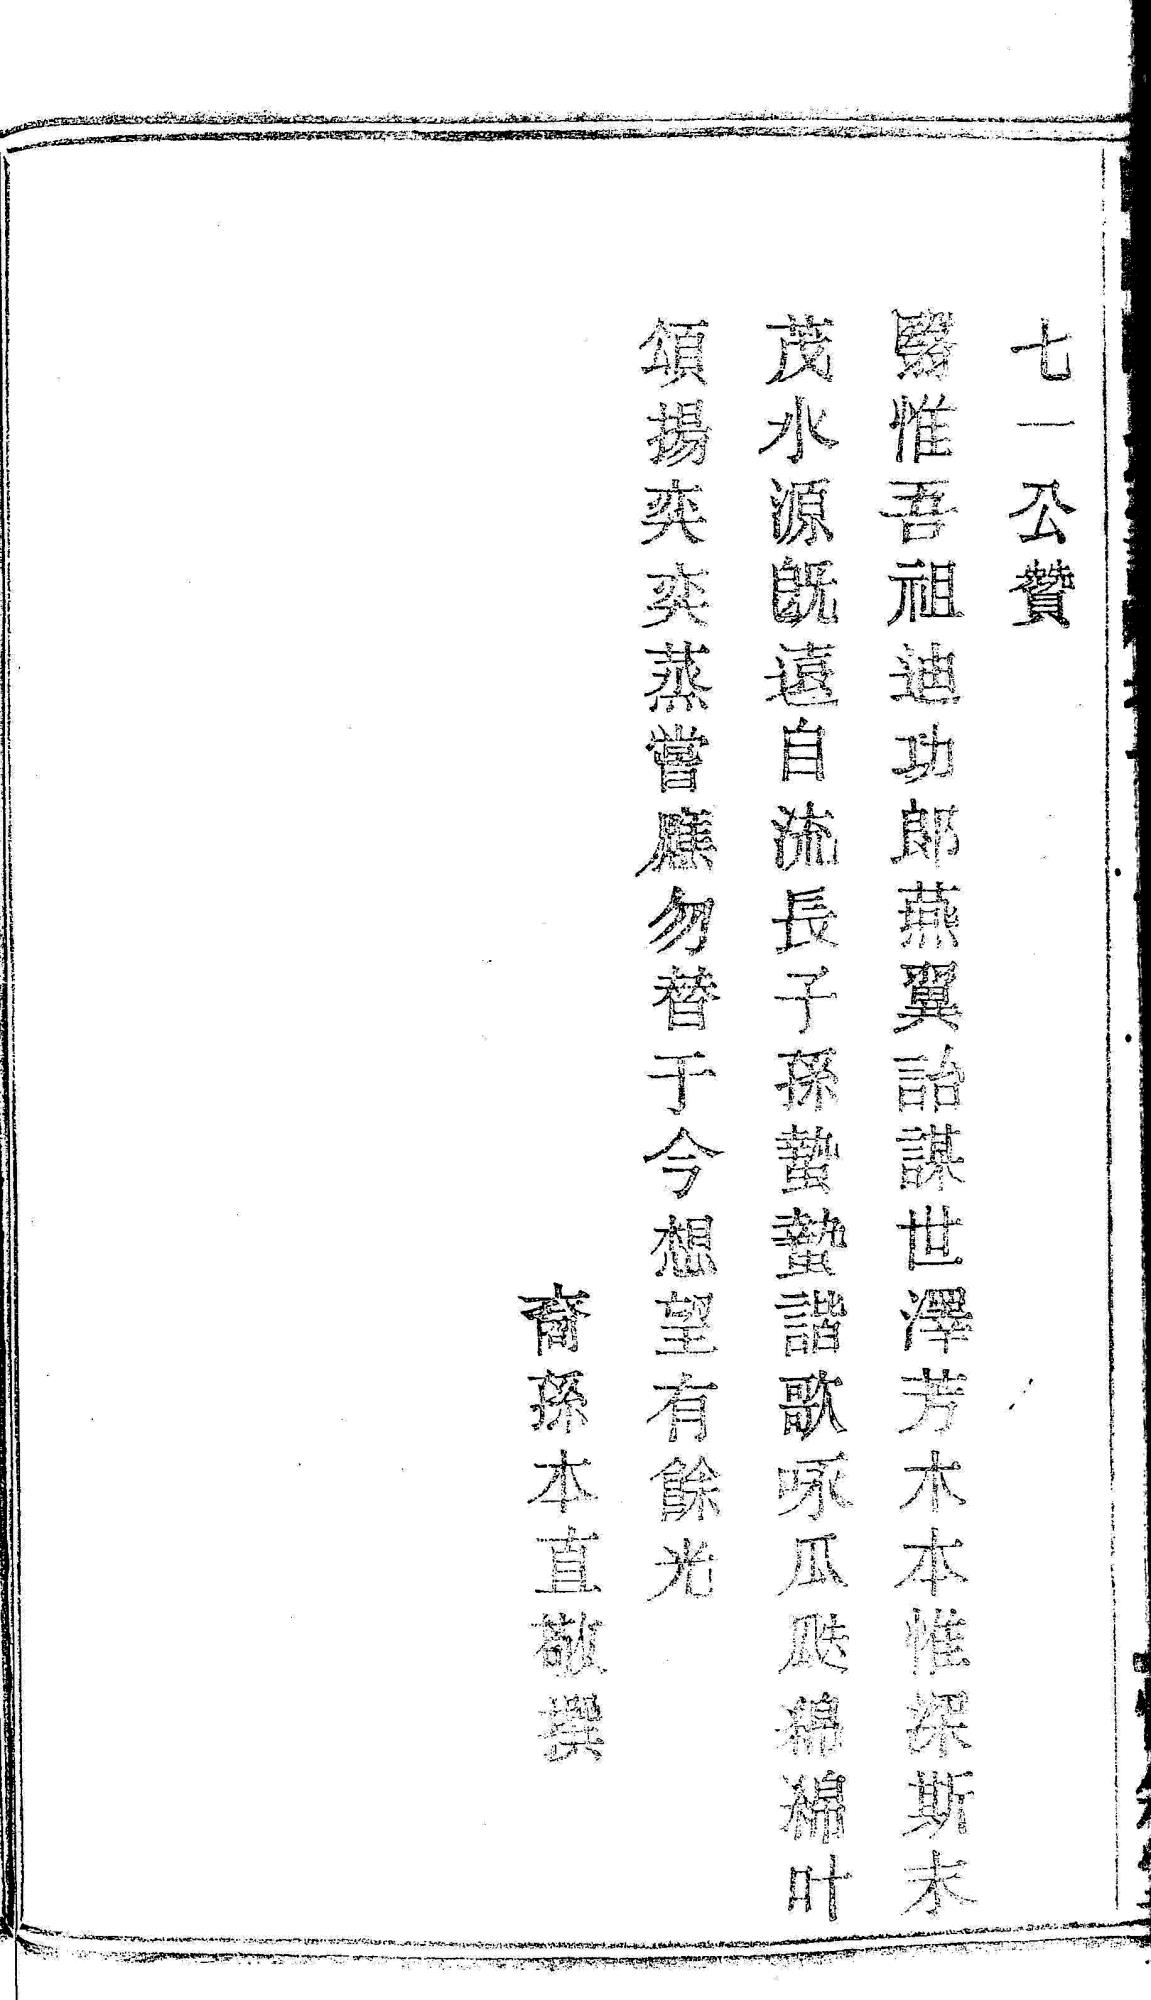 七一公贊
緊惟吾祖迪功郎燕翼詒謀世澤芳木本惟深斯末
茂水源旣遠自流長子孫蟄蟄諧歌咏瓜瓞綿綿叶
頌揚奕奕蒸嘗應勿替于今想望有餘光
裔孫本直敬撰